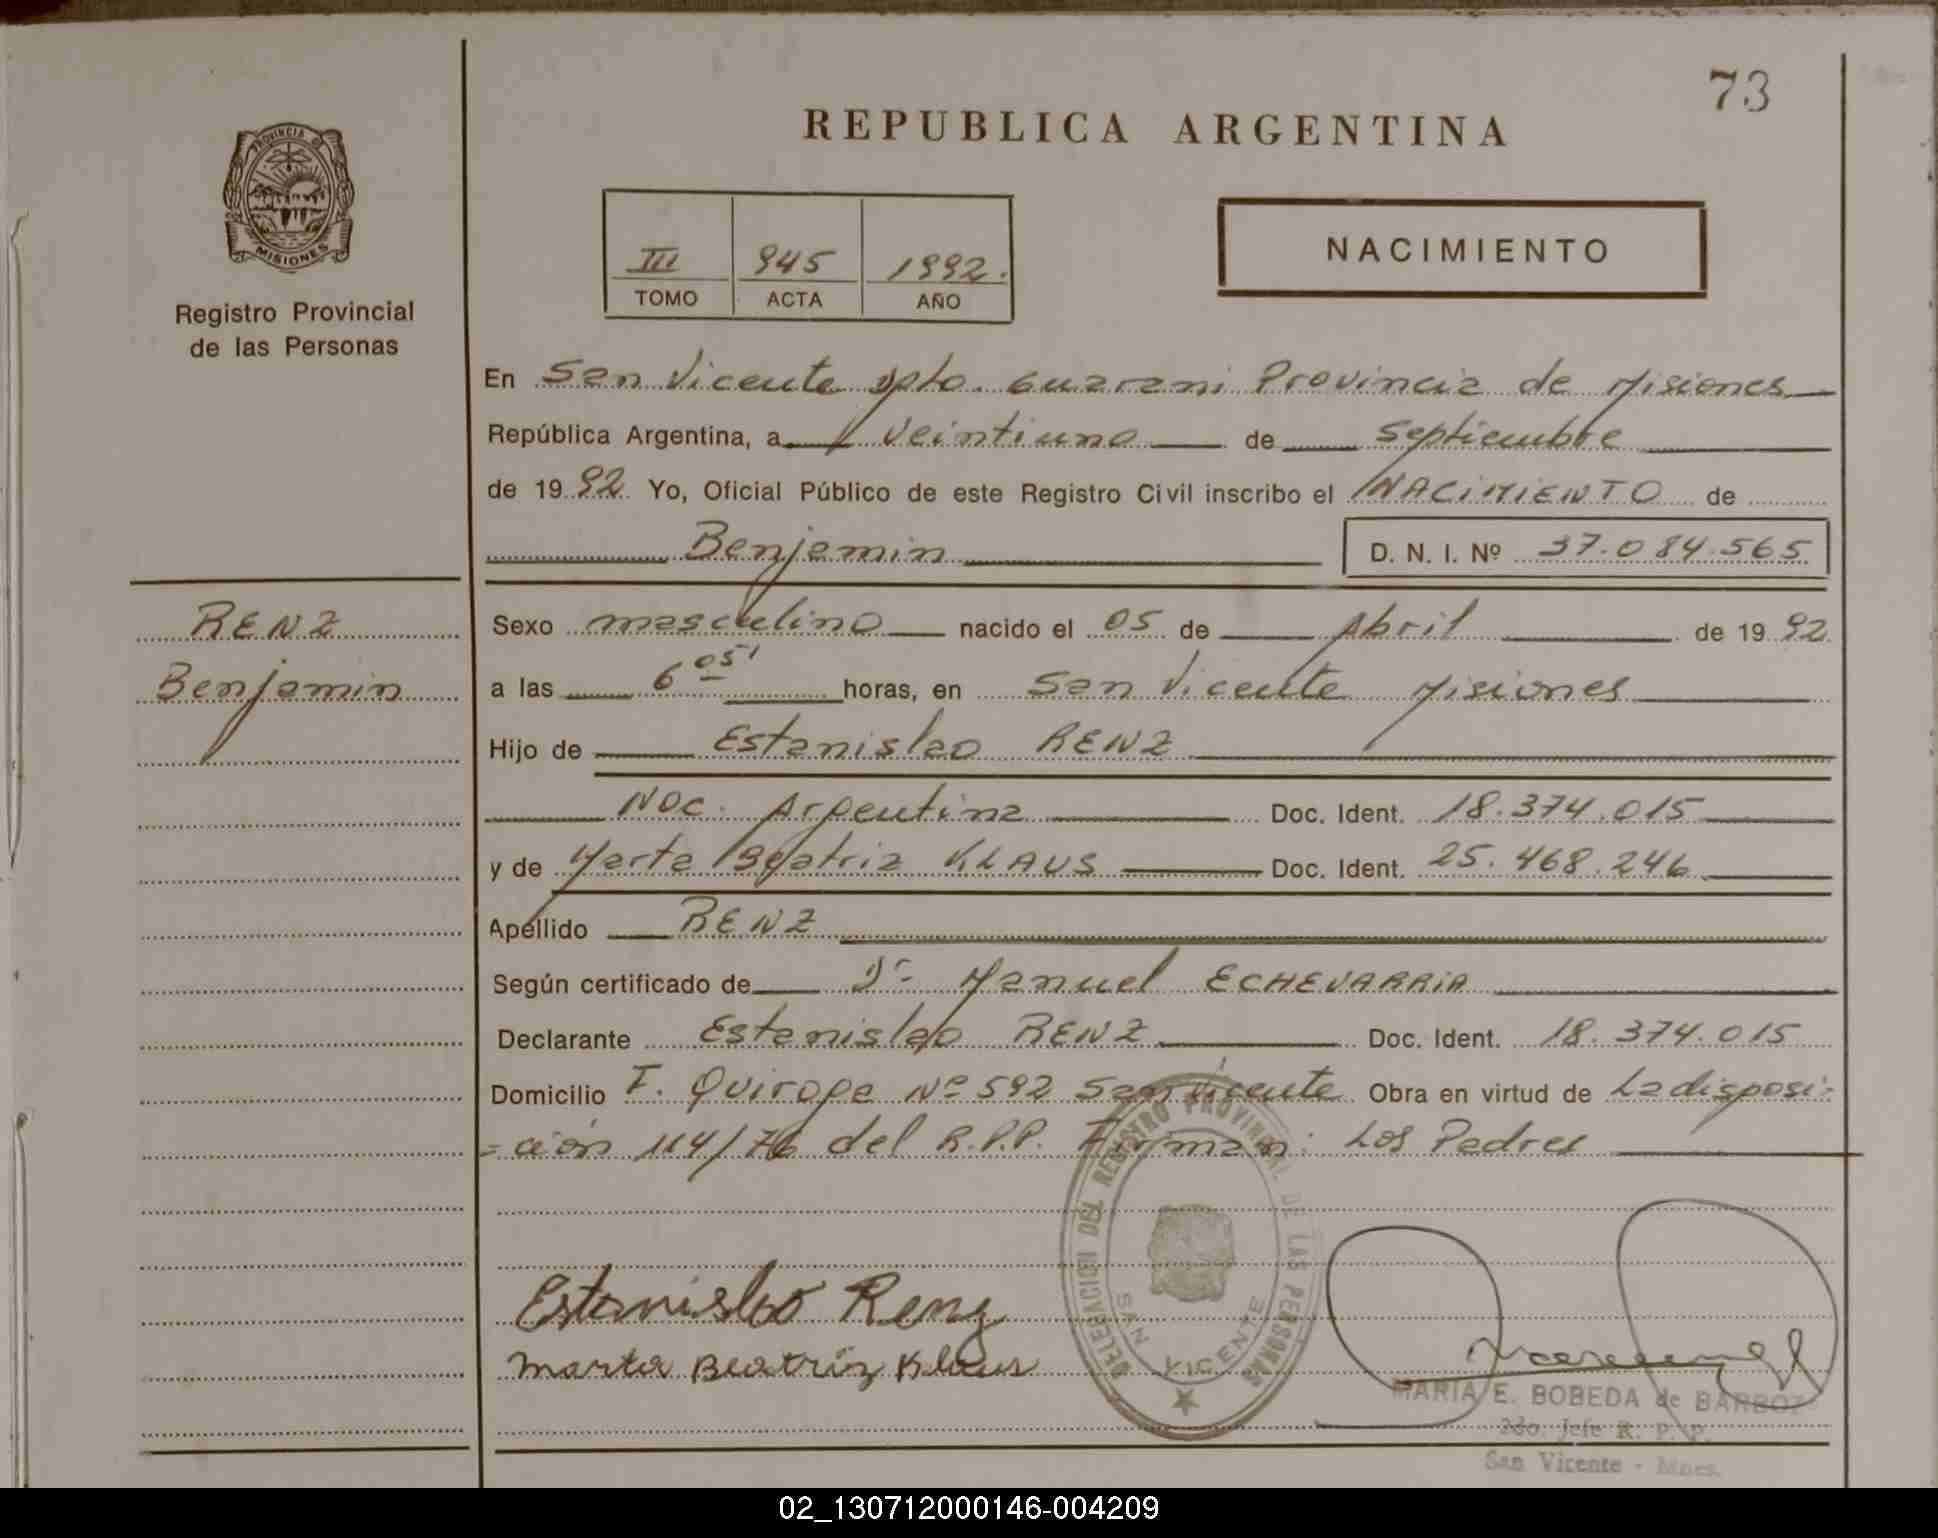 73
REPUBLICA ARGENTINA
PROVINCIA DE
MISIONES
Registro Provincial
de las Personas
III 945 1992.
TOMO ACTA AÑO
NACIMIENTO
En San Vicente Dpto. Guarani Provincia de Misiones
República Argentina, a veintiuno de Septiembre
de 1992 Yo, Oficial Público de este Registro Civil inscribo el NACIMIENTO de
Benjamin D. N. I. Nº 37.084.565
RENZ
Benjamin
Sexo masculino nacido el 05 de Abril de 1992
a las 6 05' horas, en San Vicente Misiones
Hijo de Estanislao RENZ
Nac. Argentina Doc. Ident. 18.374.015
y de Marta Beatriz KLAUS Doc. Ident. 25.468.246
Apellido RENZ
Según certificado de Dr. Manuel ECHEVARRIA
Declarante Estanislao RENZ Doc. Ident. 18.374.015
Domicilio F. Quiroga Nº 592 San Vicente Obra en virtud de La disposi-
-ción 114/76 del R.P.P. Firman: Los Padres
Estanislao Renz
Marta Beatriz Klaus
DELEGACION DEL REGISTRO PROVINCIAL DE LAS PERSONAS
SAN VICENTE
MARIA E. BOBEDA de BARBOZ
2do. Jefe R. P. P.
San Vicente - Mnes.
02_130712000146-004209